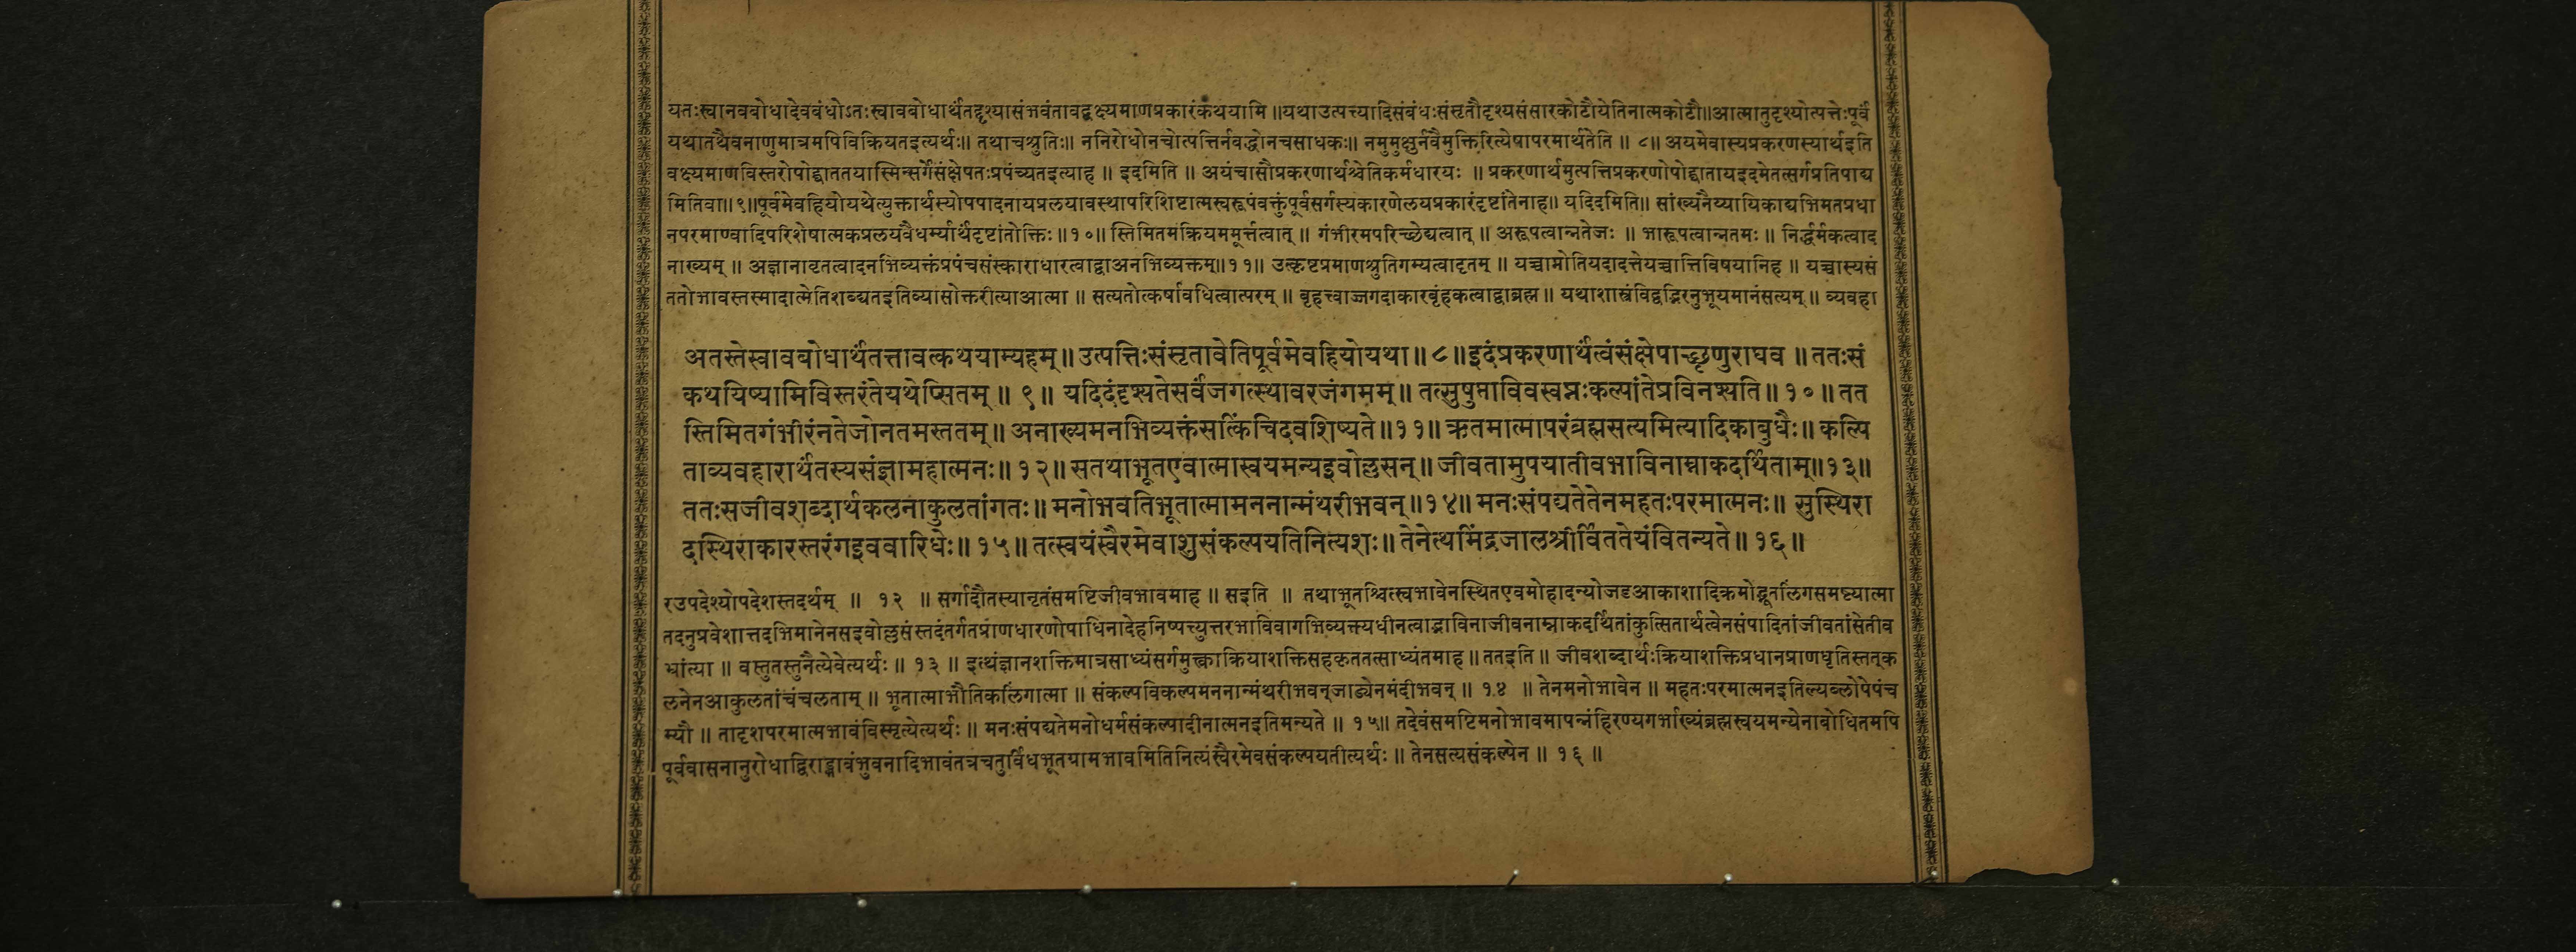 यतःस्वानवबोधादेवबंधोऽतःस्वावबोधार्थंतद्दृश्यासंभवंतावद्वक्ष्यमाणप्रकारंकथयामि ॥यथाउत्पत्त्यादिसंबंधःसंसृतौदृश्यसंसारकोटौयेतिनात्मकोटौ॥आत्मातुदृश्योत्पत्तेःपूर्वं
यथातथैवनाणुमात्रमपिविक्रियतइत्यर्थः॥ तथाचश्रुतिः॥ ननिरोधोनचोत्पत्तिर्नबद्धोनचसाधकः॥ नमुमुक्षुर्नवैमुक्तिरित्येषापरमार्थतेति ॥ ८॥ अयमेवास्यप्रकरणस्यार्थइति
वक्ष्यमाणविस्तरोपोद्घाततयास्मिन्सर्गेसंक्षेपतःप्रपंच्यतइत्याह ॥ इदमिति ॥ अयंचासौप्रकरणार्थश्चेतिकर्मधारयः ॥ प्रकरणार्थमुत्पत्तिप्रकरणोपोद्घातायइदमेतत्सर्गप्रतिपाद्य
मितिवा॥९॥पूर्वमेवहियोयथेत्युक्तार्थस्योपपादनायप्रलयावस्थापरिशिष्टात्मस्वरूपंवक्तुंपूर्वसर्गस्यकारणेलयप्रकारंदृष्टांतेनाह॥ यदिदमिति॥ सांख्यनैय्यायिकाद्यभिमतप्रधा
नपरमाण्वादिपरिशेषात्मकप्रलयवैधर्म्यार्थंदृष्टांतोक्तिः॥१०॥ स्तिमितमक्रियममूर्त्तत्वात् ॥ गंभीरमपरिच्छेद्यत्वात् ॥ अरूपत्वान्नतेजः ॥ भारूपत्वान्नतमः ॥ निर्द्धर्मकत्वाद
नाख्यम् ॥ अज्ञानावृतत्वादनभिव्यक्तंप्रपंचसंस्काराधारत्वाद्वाअनभिव्यक्तम्॥११॥ उत्कृष्टप्रमाणश्रुतिगम्यत्वादृतम् ॥ यच्चाप्नोतियदादत्तेयच्चात्तिविषयानिह ॥ यच्चास्यसं
ततोभावस्तस्मादात्मेतिशब्द्यतइतिव्यासोक्तरीत्याआत्मा ॥ सत्यतोत्कर्षावधित्वात्परम् ॥ बृहत्त्वाज्जगदाकारबृंहकत्वाद्वाब्रह्म॥ यथाशास्त्रंविद्वद्भिरनुभूयमानंसत्यम् ॥ व्यवहा
अतस्तेस्वावबोधार्थंतत्तावत्कथयाम्यहम्॥ उत्पत्तिःसंसृतावेतिपूर्वमेवहियोयथा॥ ८॥इदंप्रकरणार्थंत्वंसंक्षेपाच्छृणुराघव ॥ ततःसं
कथयिष्यामिविस्तरंतेयथेप्सितम् ॥ ९॥ यदिदंदृश्यतेसर्वंजगत्स्थावरजंगमम्॥ तत्सुषुप्ताविवस्वप्नःकल्पांतेप्रविनश्यति॥ १०॥ तत
स्तिमितगंभीरंनतेजोनतमस्ततम्॥ अनाख्यमनभिव्यक्तंसत्किंचिदवशिष्यते॥११॥ ऋतमात्मापरंब्रह्मसत्यमित्यादिकाबुधैः॥ कल्पि
ताव्यवहारार्थंतस्यसंज्ञामहात्मनः॥ १२॥ सतथाभूतएवात्मास्वयमन्यइवोल्लसन्॥ जीवतामुपयातीवभाविनाम्नाकदर्थिताम्॥१३॥
ततःसजीवशब्दार्थकलनाकुलतांगतः॥ मनोभवतिभूतात्मामननान्मंथरीभवन्॥१४॥ मनःसंपद्यतेतेनमहतःपरमात्मनः॥ सुस्थिरा
दस्थिराकारस्तरंगइववारिधेः॥ १५॥ तत्स्वयंस्वैरमेवाशुसंकल्पयतिनित्यशः॥ तेनेत्थमिंद्रजालश्रीर्विततेयंवितन्यते॥ १६॥
रउपदेश्योपदेशस्तदर्थम् ॥ १२ ॥ सर्गादौतस्यानृतंसमष्टिजीवभावमाह ॥ सइति ॥ तथाभूतश्चित्स्वभावेनस्थितएवमोहादन्योजडआकाशादिक्रमोद्भूतलिंगसमष्ट्यात्मा
तदनुप्रवेशात्तदभिमानेनसइवोल्लसंस्तदंतर्गतप्राणधारणोपाधिनादेहनिष्पत्त्युत्तरभाविवागभिव्यक्त्यधीनत्वाद्भाविनाजीवनाम्नाकदर्थितांकुत्सितार्थत्वेनसंपादितांजीवतांसेतीव
भ्रांत्या ॥ वस्तुतस्तुनैत्येवेत्यर्थः॥ १३ ॥ इत्थंज्ञानशक्तिमात्रसाध्यंसर्गमुक्त्वाक्रियाशक्तिसहकृततत्साध्यंतमाह॥ ततइति॥ जीवशब्दार्थःक्रियाशक्तिप्रधानप्राणधृतिस्तत्क
लनेनआकुलतांचंचलताम् ॥ भूतात्माभौतिकलिंगात्मा ॥ संकल्पविकल्पमननान्मंथरीभवन्जाड्येनमंदीभवन् ॥ १४ ॥ तेनमनोभावेन ॥ महतःपरमात्मनइतिल्यब्लोपेपंच
म्यौ ॥ तादृशपरमात्मभावंविस्मृत्येत्यर्थः ॥ मनःसंपद्यतेमनोधर्मसंकल्पादीनात्मनइतिमन्यते ॥ १५॥ तदेवंसमष्टिमनोभावमापन्नंहिरण्यगर्भाख्यंब्रह्मस्वयमन्येनाबोधितमपि
पूर्ववासनानुरोधाद्विराड्भावंभुवनादिभावंतत्रचतुर्विधभूतग्रामभावमितिनित्यंस्वैरमेवसंकल्पयतीत्यर्थः ॥ तेनसत्यसंकल्पेन ॥ १६ ॥